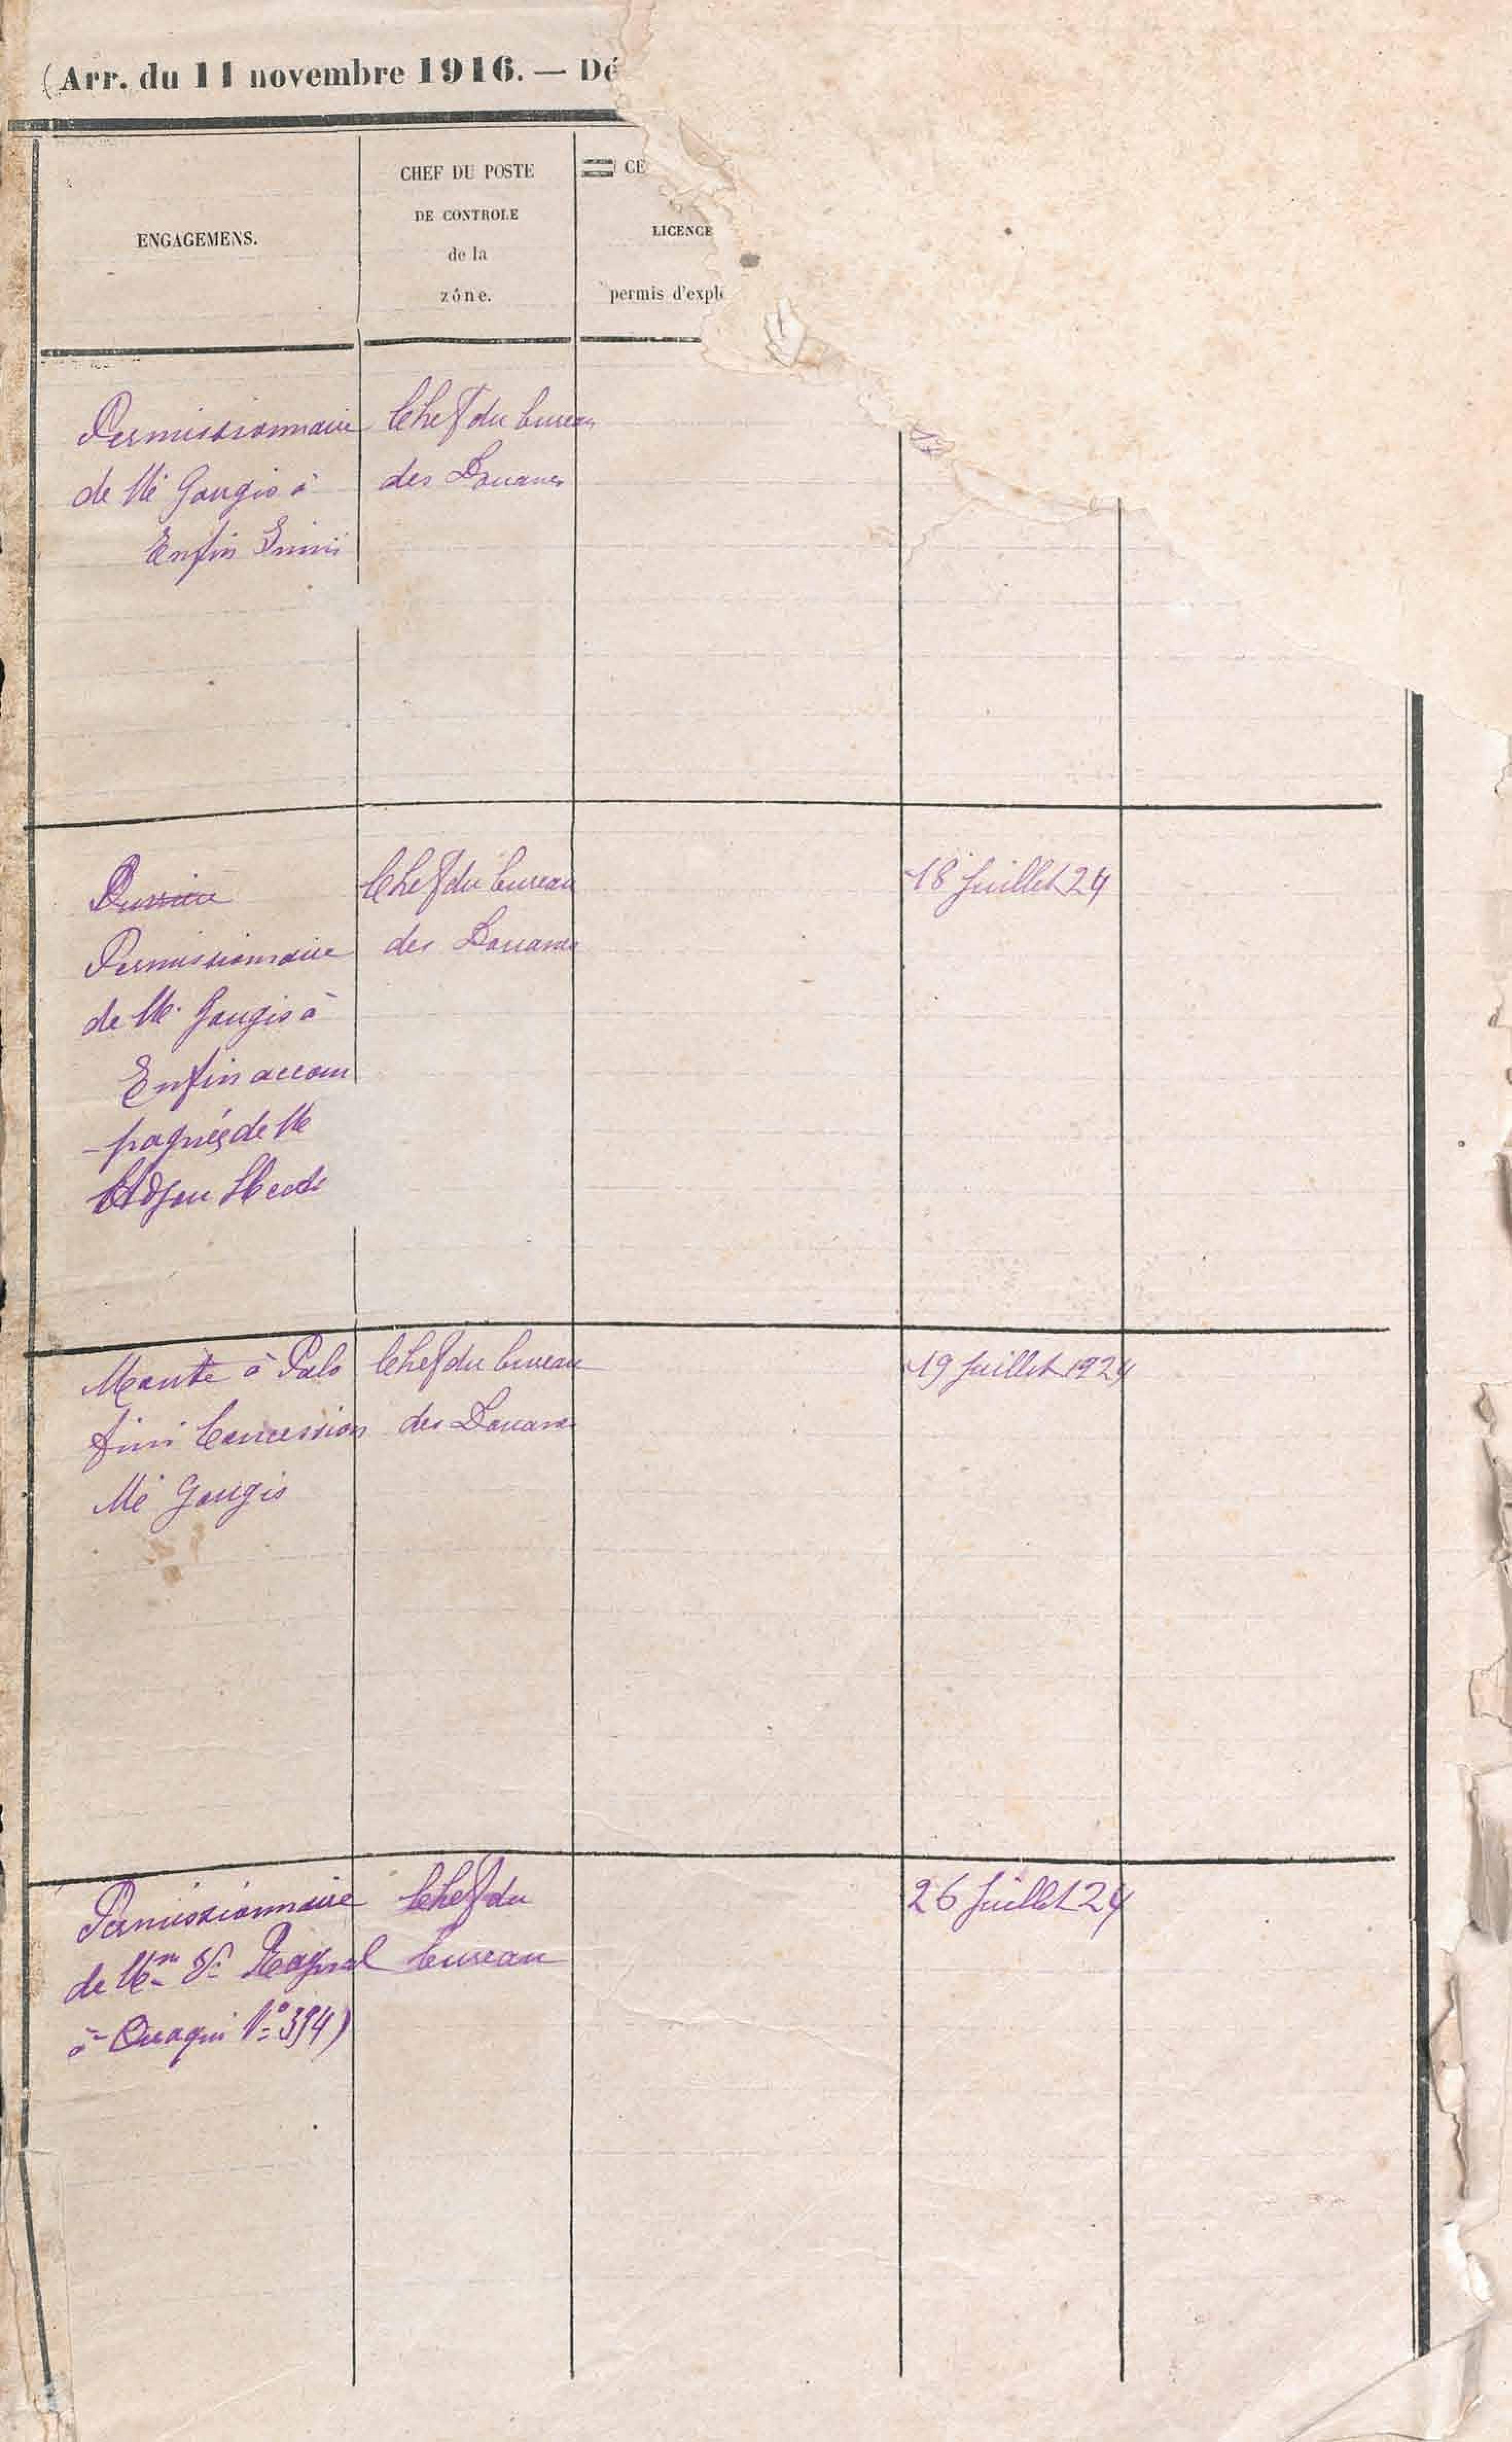 (Arr. du 11 novembre 1916. — Dé
ENGAGEMENS.
CHEF DU POSTE
DE CONTROLE
de la
zône.
CE
LICENCE
permis d'expl
Permissionnaire
de Mé Gougis à
Enfin
Chef du bureau
des Douanes
Permissionnaire
de M. Gougis à
Enfin accom
pagnés de Me
Chef du bureau
des Douanes
18 Juillet 24
Monte à Palo
fini Concession
Mé Gougis
Chef du bureau
des Douanes
19 Juillet 1924
Permissionnaire
de Mme Vve
à Ouaqui No 394)
Chef du
bureau
26 Juillet 24